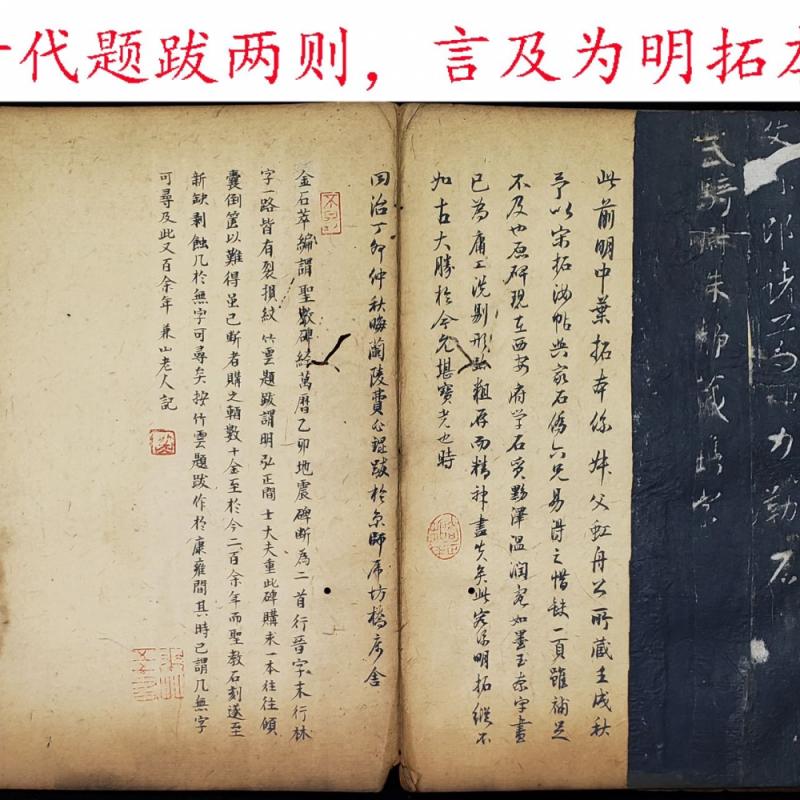 代题跋两则，言及为明拓
父小郎诸葛神力勒石
武骑尉朱静藏镌字
此前明中叶拓本系舛父虹舟公所藏壬戌秋
予以宋拓汝帖与家石儁六兄易得之惜缺一頁雖補足
不及也原碑現在西安府学石質黟澤温润宛如墨玉奈字畫
已为庸工洗剔形骸粗存而精神盡失矣此宛係明拓縱不
如古大勝於今允堪寶先也時
同治丁卯仲秋晦蘭陵費公跋於京師席坊橋彦舍
金石萃編謂聖教碑終萬曆乙卯地震碑断為二首行晉字末行林
字一路皆有裂損紋竹雲題跋謂明弘正間士大夫重此碑購求一本往往傾
囊倒篋以難得虽已断者購之輒数十金至於今二百余年而聖教石刻遂至
新缺剥蝕几於無字可尋矣按竹雲題跋作於康雍間其時已謂几無字
可尋及此又百余年 兼山老人記